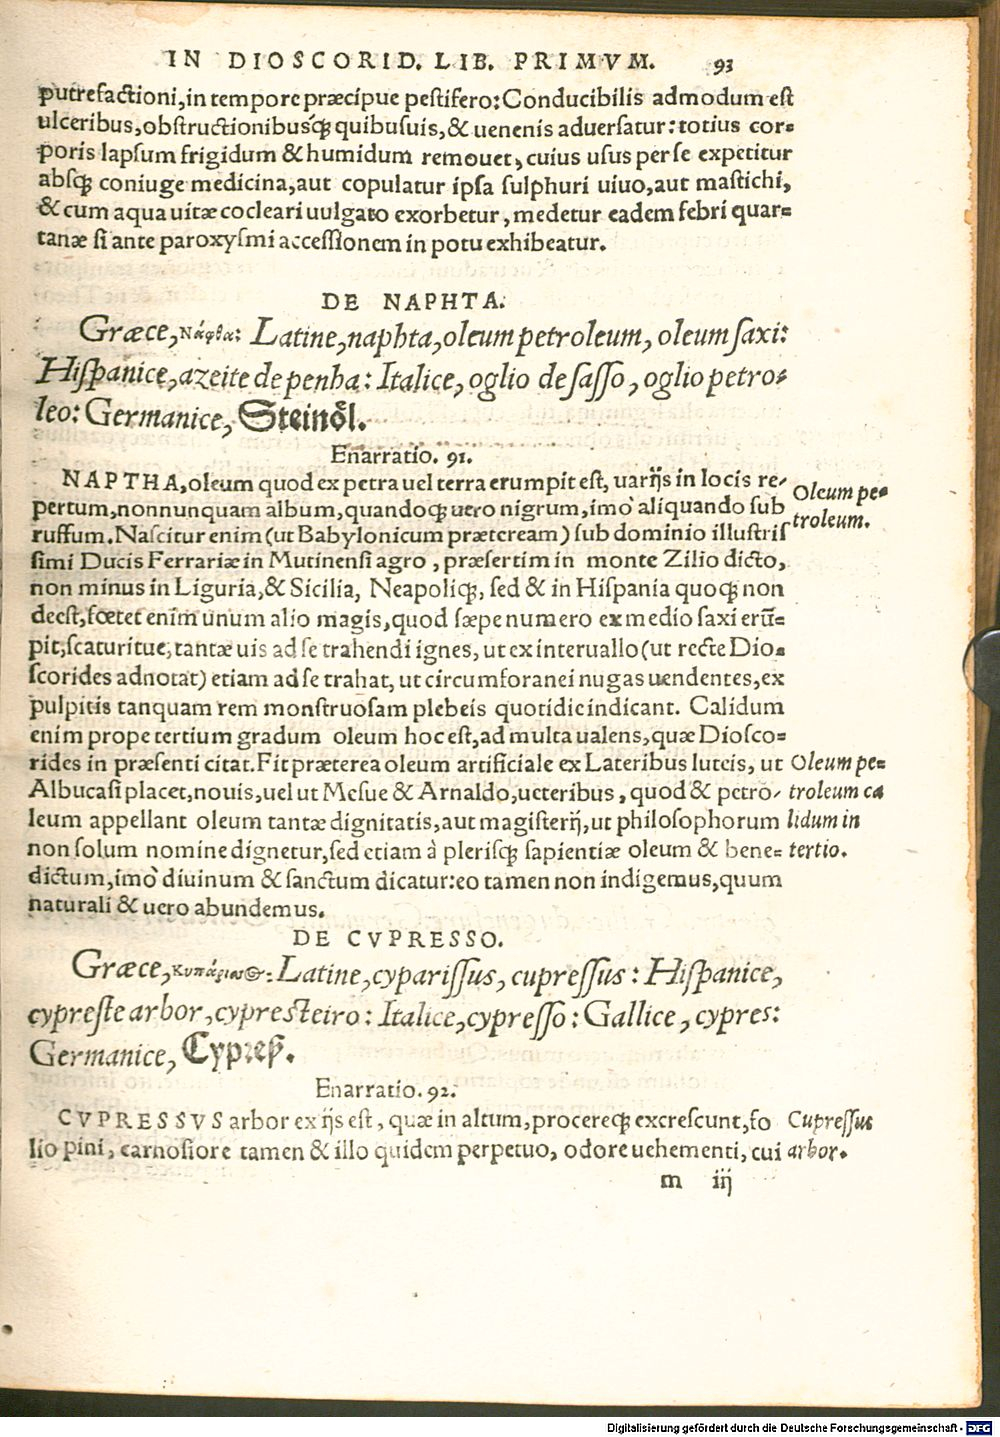 IN DIOSCORID. LIB. PRIMVM. 93
putrefactioni, in tempore præcipue pestifero: Conducibilis admodum est
ulceribus, obstructionibusq́ꝫ quibusuis, & uenenis aduersatur: totius cor-
poris lapsum frigidum & humidum remouet, cuius usus per se expetitur
absqꝫ coniuge medicina, aut copulatur ipsa sulphuri uiuo, aut mastichi,
& cum aqua uitæ cocleari uulgato exorbetur, medetur eadem febri quar-
tanæ si ante paroxysmi accessionem in potu exhibeatur.
DE NAPHTA.
Græce, Νάφθα: Latine, naphta, oleum petroleum, oleum saxi:
Hispanice, azeite de penha: Italice, oglio de sasso, oglio petro-
leo: Germanice, Steinȯl.
Enarratio. 91.
NAPTHA, oleum quod ex petra uel terra erumpit est, uarijs in locis re-
pertum, nonnunquam album, quandoqꝫ uero nigrum, imò aliquando sub
ruffum. Nascitur enim (ut Babylonicum prætcream) sub dominio illustris
simi Ducis Ferrariæ in Mutinensi agro, præsertim in monte Zilio dicto,
non minus in Liguria, & Sicilia, Neapoliqꝫ, sed & in Hispania quoqꝫ non
deest, fœtet enim unum alio magis, quod sæpenumero ex medio saxi erũ-
pit, scaturitue, tantæ uis ad se trahendi ignes, ut ex interuallo (ut recte Dio-
scorides adnotat) etiam ad se trahat, ut circumforanei nugas uendentes, ex
pulpitis tanquam rem monstruosam plebeis quotidie indicant. Calidum
enim prope tertium gradum oleum hoc est, ad multa ualens, quæ Diosco-
rides in præsenti citat. Fit præterea oleum artificiale ex Lateribus luteis, ut
Albucasi placet, nouis, uel ut Mesue & Arnaldo, ueteribus, quod & petrō-
leum appellant oleum tantæ dignitatis, aut magisterij, ut philosophorum
non solum nomine dignetur, sed etiam à plerisqꝫ sapientiæ oleum & bene-
dictum, imò diuinum & sanctum dicatur: eo tamen non indigemus, quum
naturali & uero abundemus.
Oleum pe-
troleum.
Oleum pe-
troleum ca
lidum in
tertio.
DE CVPRESSO.
Græce, Κυπάρισσος: Latine, cyparissus, cupressus: Hispanice,
cypreste arbor, cypresteiro: Italice, cypresso: Gallice, cypres:
Germanice, Cypreß.
Enarratio. 92.
CVPRESSVS arbor ex ijs est, quæ in altum, procereqꝫ excrescunt, fo
lio pini, carnosiore tamen & illo quidem perpetuo, odore uehementi, cui
Cupressus
arbor.
m iij
Digitalisierung gefördert durch die Deutsche Forschungsgemeinschaft - DFG